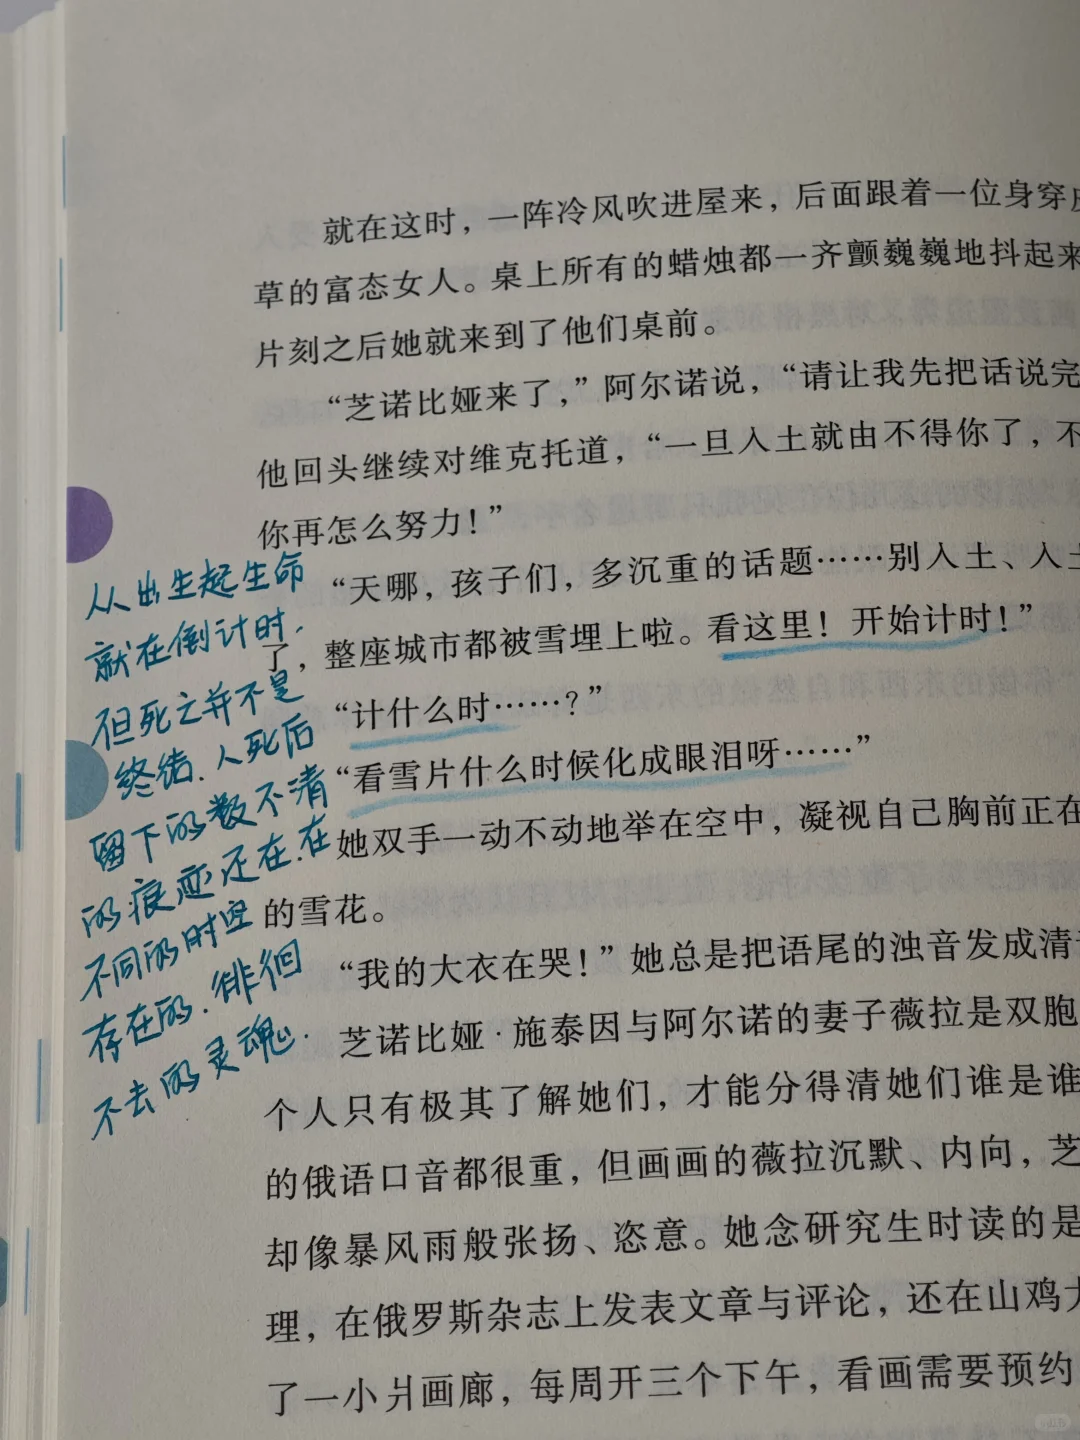 就在这时，一阵冷风吹进屋来，后面跟着一位身穿
草的富态女人。桌上所有的蜡烛都一齐颤巍巍地抖起来
片刻之后她就来到了他们桌前。
“芝诺比娅来了，”阿尔诺说，“请让我先把话说完
他回头继续对维克托道，“一旦入土就由不得你了，不
你再怎么努力！”
“天哪，孩子们，多沉重的话题……别入土、入土
了，整座城市都被雪埋上啦。看这里！开始计时！”
“计什么时……？”
“看雪片什么时候化成眼泪呀……”
她双手一动不动地举在空中，凝视自己胸前正在
的雪花。
“我的大衣在哭！”她总是把语尾的浊音发成清
芝诺比娅·施泰因与阿尔诺的妻子薇拉是双胞
个人只有极其了解她们，才能分得清她们谁是谁
的俄语口音都很重，但画画的薇拉沉默、内向，芝
却像暴风雨般张扬、恣意。她念研究生时读的是
理，在俄罗斯杂志上发表文章与评论，还在山鸡大
了一小爿画廊，每周开三个下午，看画需要预约
从出生起生命
就在倒计时.
但死亡并不是
终结.人死后
留下的数不清
的痕迹还在.在
不同的时空
存在的.徘徊
不去的灵魂.